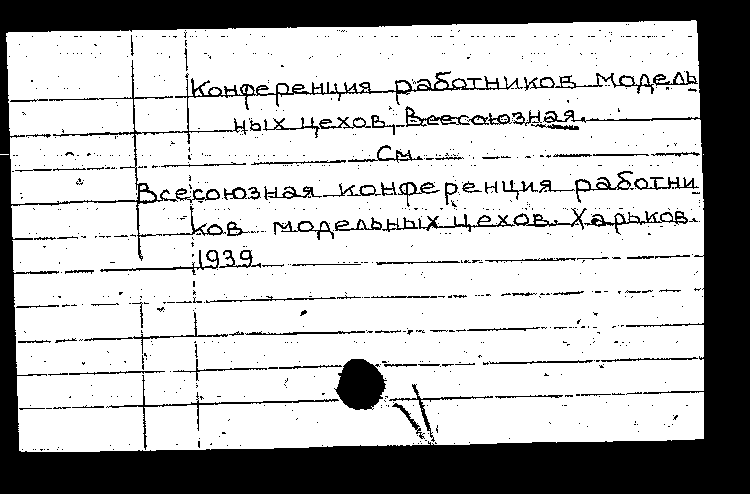 Конференция работников модель
ных цехов, Всесоюзная.
См.
Всесоюзная конференция работни
ков модельных цехов. Харьков.
1939.